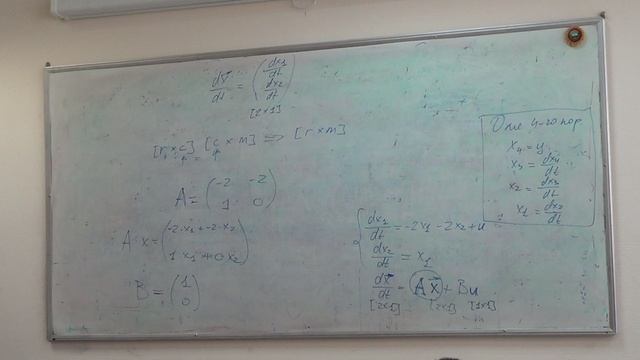 dx⃗/dt = (dx₁/dt
dx₂/dt)
[2×1]
[r × c] [c × m] ⇒ [r × m]
A = (-2 -2
1 0)
A·x = (-2·x₁+-2·x₂
1·x₁+0·x₂)
B = (1
0)
dx₁/dt = -2x₁ - 2x₂ + u
dx₂/dt = x₁
dx⃗/dt = Ax⃗ + Bu
[2×1] [2×1] [1×1]
4-го пор
x₄ = y
x₃ = dx₄/dt
x₂ = dx₃/dt
x₁ = dx₂/dt